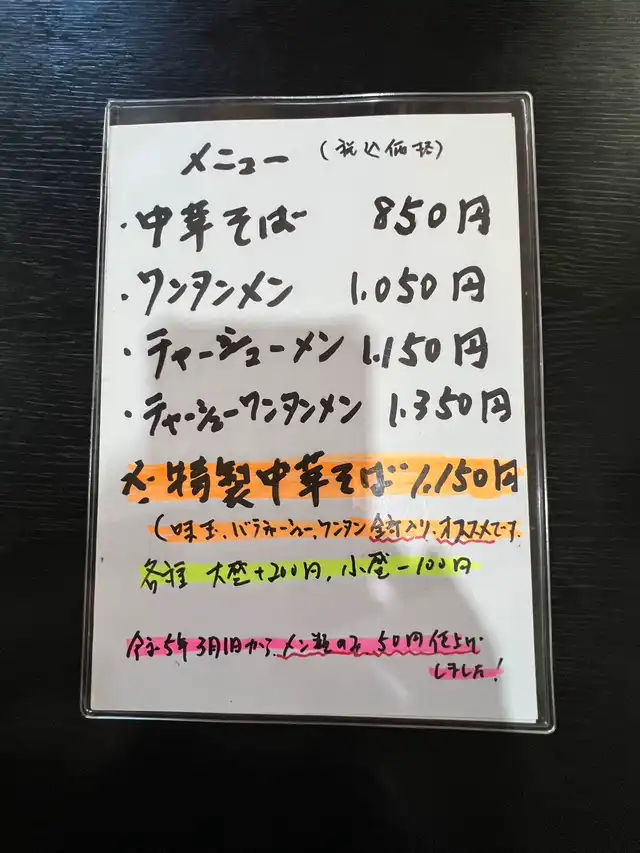 メニュー (税込価格)
・中華そば 850円
・ワンタンメン 1.050円
・チャーシューメン 1.150円
・チャーシューワンタンメン 1.350円
※特製中華そば 1.150円
(味玉、バラチャーシュー、ワンタン全部入り、オススメです。
各種 大盛+200円, 小盛-100円
令和5年3月1日から、メン類のみ、50円値上げ
しました!